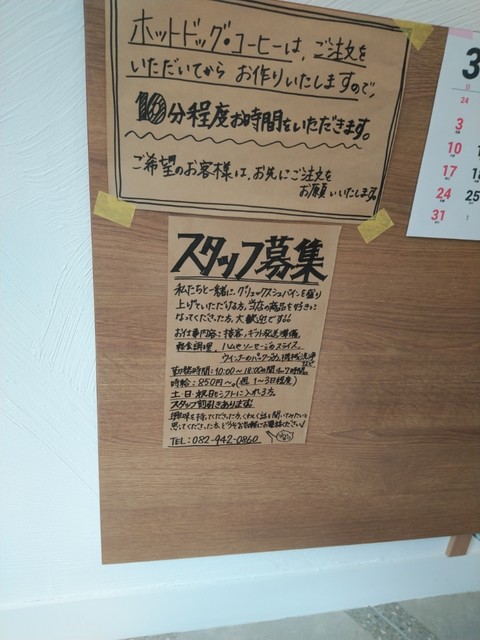 ホットドッグ・コーヒーは、ご注文を
いただいてから お作りいたしますので、
10分程度お時間をいただきます。
ご希望のお客様は、お先にご注文を
お願いいたします。
スタッフ募集
私たちと一緒に、グリュックスシュバインを盛り
上げていただける方、当店の商品を好きに
なってくださった方、大歓迎です!!
お仕事内容:接客、ギフト発送準備、
軽食調理、ハムやソーセージのスライス、
ウインナーのパックづめ、機械洗浄
など
勤務時間:10:00~18:00の間
時給:850円~(週1~3日程度)
土・日・祝日もシフトに入れる方。
スタッフ割引きあります!
興味を持ってくださった方、くわしく話を聞いてみたいと
思ってくださった方、どうぞお気軽にお電話ください!
TEL:082-942-0860
3
日
24
3
10
17
24
25
31